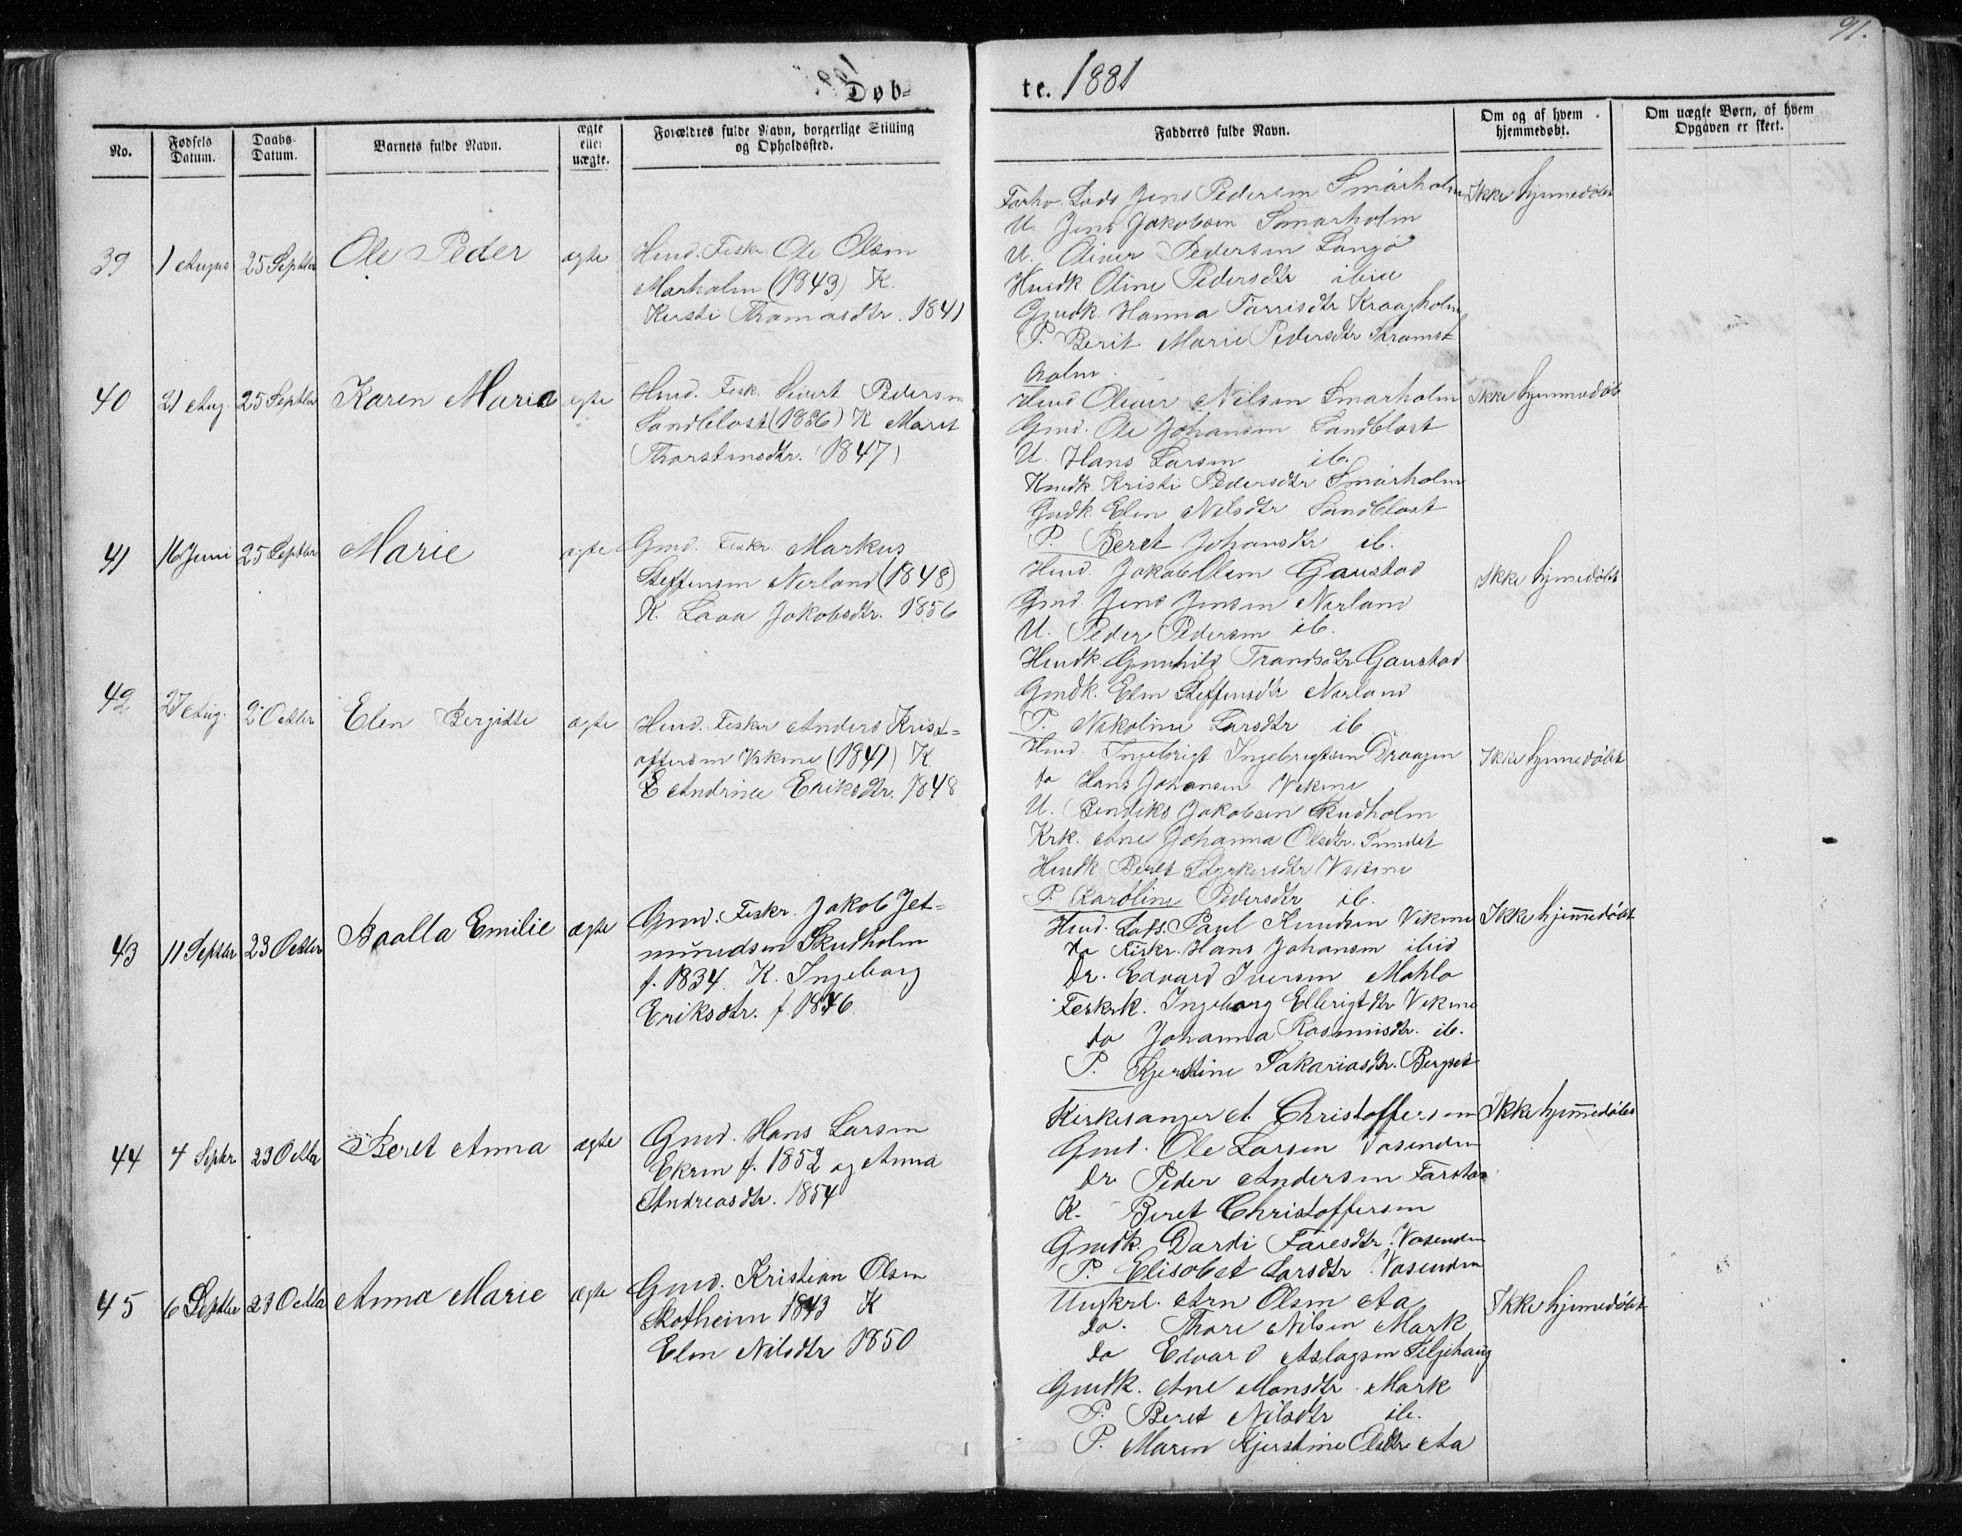 91.
Døb-
te. 1881
No.
Fødsels Datum.
Daabs- Datum.
Barnets fulde Navn.
ægte eller uægte.
Forældres fulde Navn, borgerlige Stilling og Opholdssted.
Fadderes fulde Navn.
Om og af hvem hjemmedøbt.
Om uægte Børn, af hvem Opgaven er skeet.
39
1 August
25 Septbr
Ole Peder
ægte
Hmd. Fiskr. Ole Olsen
Marholm (1843) K.
Kirsti Thomasdtr. 1841
Lods Jens Pedersen Smørholm
U. Jens Jakobsen Smørholm
U. Oliver Pedersen Langø
Hmdk Oline Pedersdtr ibid
Gmdk Hanna Tarrisdtr Kraagholm
P. Berit Marie Pedersdtr
holm.
Ikke hjemmedøbt
40
21 Aug.
25 Septbr
Karen Marie
ægte
Hmd. Fisk. Sivert Pedersen
Sandblost (1836) K Marit
Thorstensdtr. 1847)
Hmd Oliver Nilsen Smørholm
Gmd. Ole Johansen Sandblost
U. Hans Larsen ib.
Hmdk Kristi Pedersdtr Smørholm
Gmdk Elen Nilsdtr Sandblost
P. Beret Johansdtr ib.
Ikke hjemmedøbt
41
16 Juni
25 Septbr
Marie
ægte
Gmd. Fiskr. Markus
Steffensen Nerland (1848)
K. Lava Jakobsdtr. 1856
Hmd. Jakob Olsen Gaustad
Gmd. Jens Jensen Nerland
U. Peder Pedersen ib.
Hmdk Gunhild Trondsdtr Gaustad
Gmdk. Elen Steffensdtr Nerland
P. Nikoline Larsdtr ib
Ikke hjemmedøbt
42
27 Aug.
2 Octbr
Elen Bergitte
ægte
Hmd. Fisker Anders Krist-
offersen Vikene (1841) K
E Andrina Eriksdtr. 1848
Hmd. Ingebrigt Ingebrigtsen Draagen
do Hans Johansen Vikene
U. Bendiks Jakobsen Skudholm
Krk. Ane Johanna Olsdtr. Sundet
Hmdk Beret Styrkersdtr Vikene
P. Karoline Pedersdtr ib.
Ikke hjemmedøbt
43
11 Septbr
23 Octbr
Baalla Emilie
ægte
Gmd. Fiskr. Jakob Jet-
mundsen Skudholm
f. 1834. K. Ingeborg
Eriksdtr. f. 1846.
Hmd. Lods. Paul Knudsen Vikene
do Fiskr. Hans Johansen ibid
Dr. Edvard Iversen Mohlo
Fiskrk. Ingeborg Ellingsdtr Vikene
do Johanna Rasmusdtr. ib.
P. Kjerstine Sakariasdtr. Bergset
Ikke hjemmedøbt
44
4 Septbr
23 Octbr
Beret Anna
ægte
Gmd. Hans Larsen
Ekren f. 1852 og Anna
Andreasdtr. 1854
Kirkesanger A. Christoffersen
Gmd. Ole Larsen Vasenden
Dr. Peder Andersen Farstad
K. Beret Christoffersen
Gmdk. Dardi Faresdtr. Vasenden
P. Elisabet Larsdtr Vasenden
Ikke hjemmedøbt
45
6 Septbr
23 Octbr
Anna Marie
ægte
Gmd. Kristian Olsen
Skotheim 1843 K
Elen Nilsdtr 1850
Ungkrl. Arn Olsen Aa
do. Thore Nilsen Mark
do Edvard Aslagsen Seljehaug
Gmdk. Ane Monsdtr. Mark
P. Beret Nilsdtr ib.
P. Maren Kjerstine Olsdtr Aa
Ikke hjemmedøbt